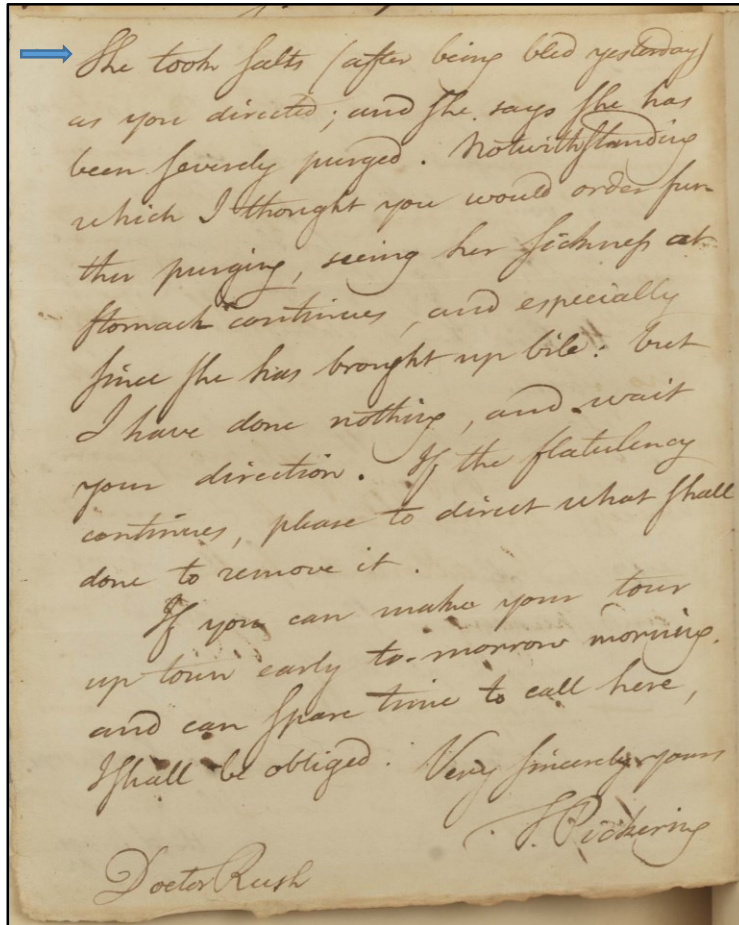 She took salts (after being bled yesterday)
as you directed; and she says she has
been severely purged. Notwithstanding
which I thought you would order fur-
ther purging, seeing her sickness at
stomach continues, and especially
since she has brought up bile: but
I have done nothing, and wait
your direction. If the flatulency
continues, please to direct what shall
done to remove it.
If you can make your tour
up town early to-morrow morning,
and can spare time to call here,
I shall be obliged. Very sincerely yours
T. Pickering
Doctor Rush